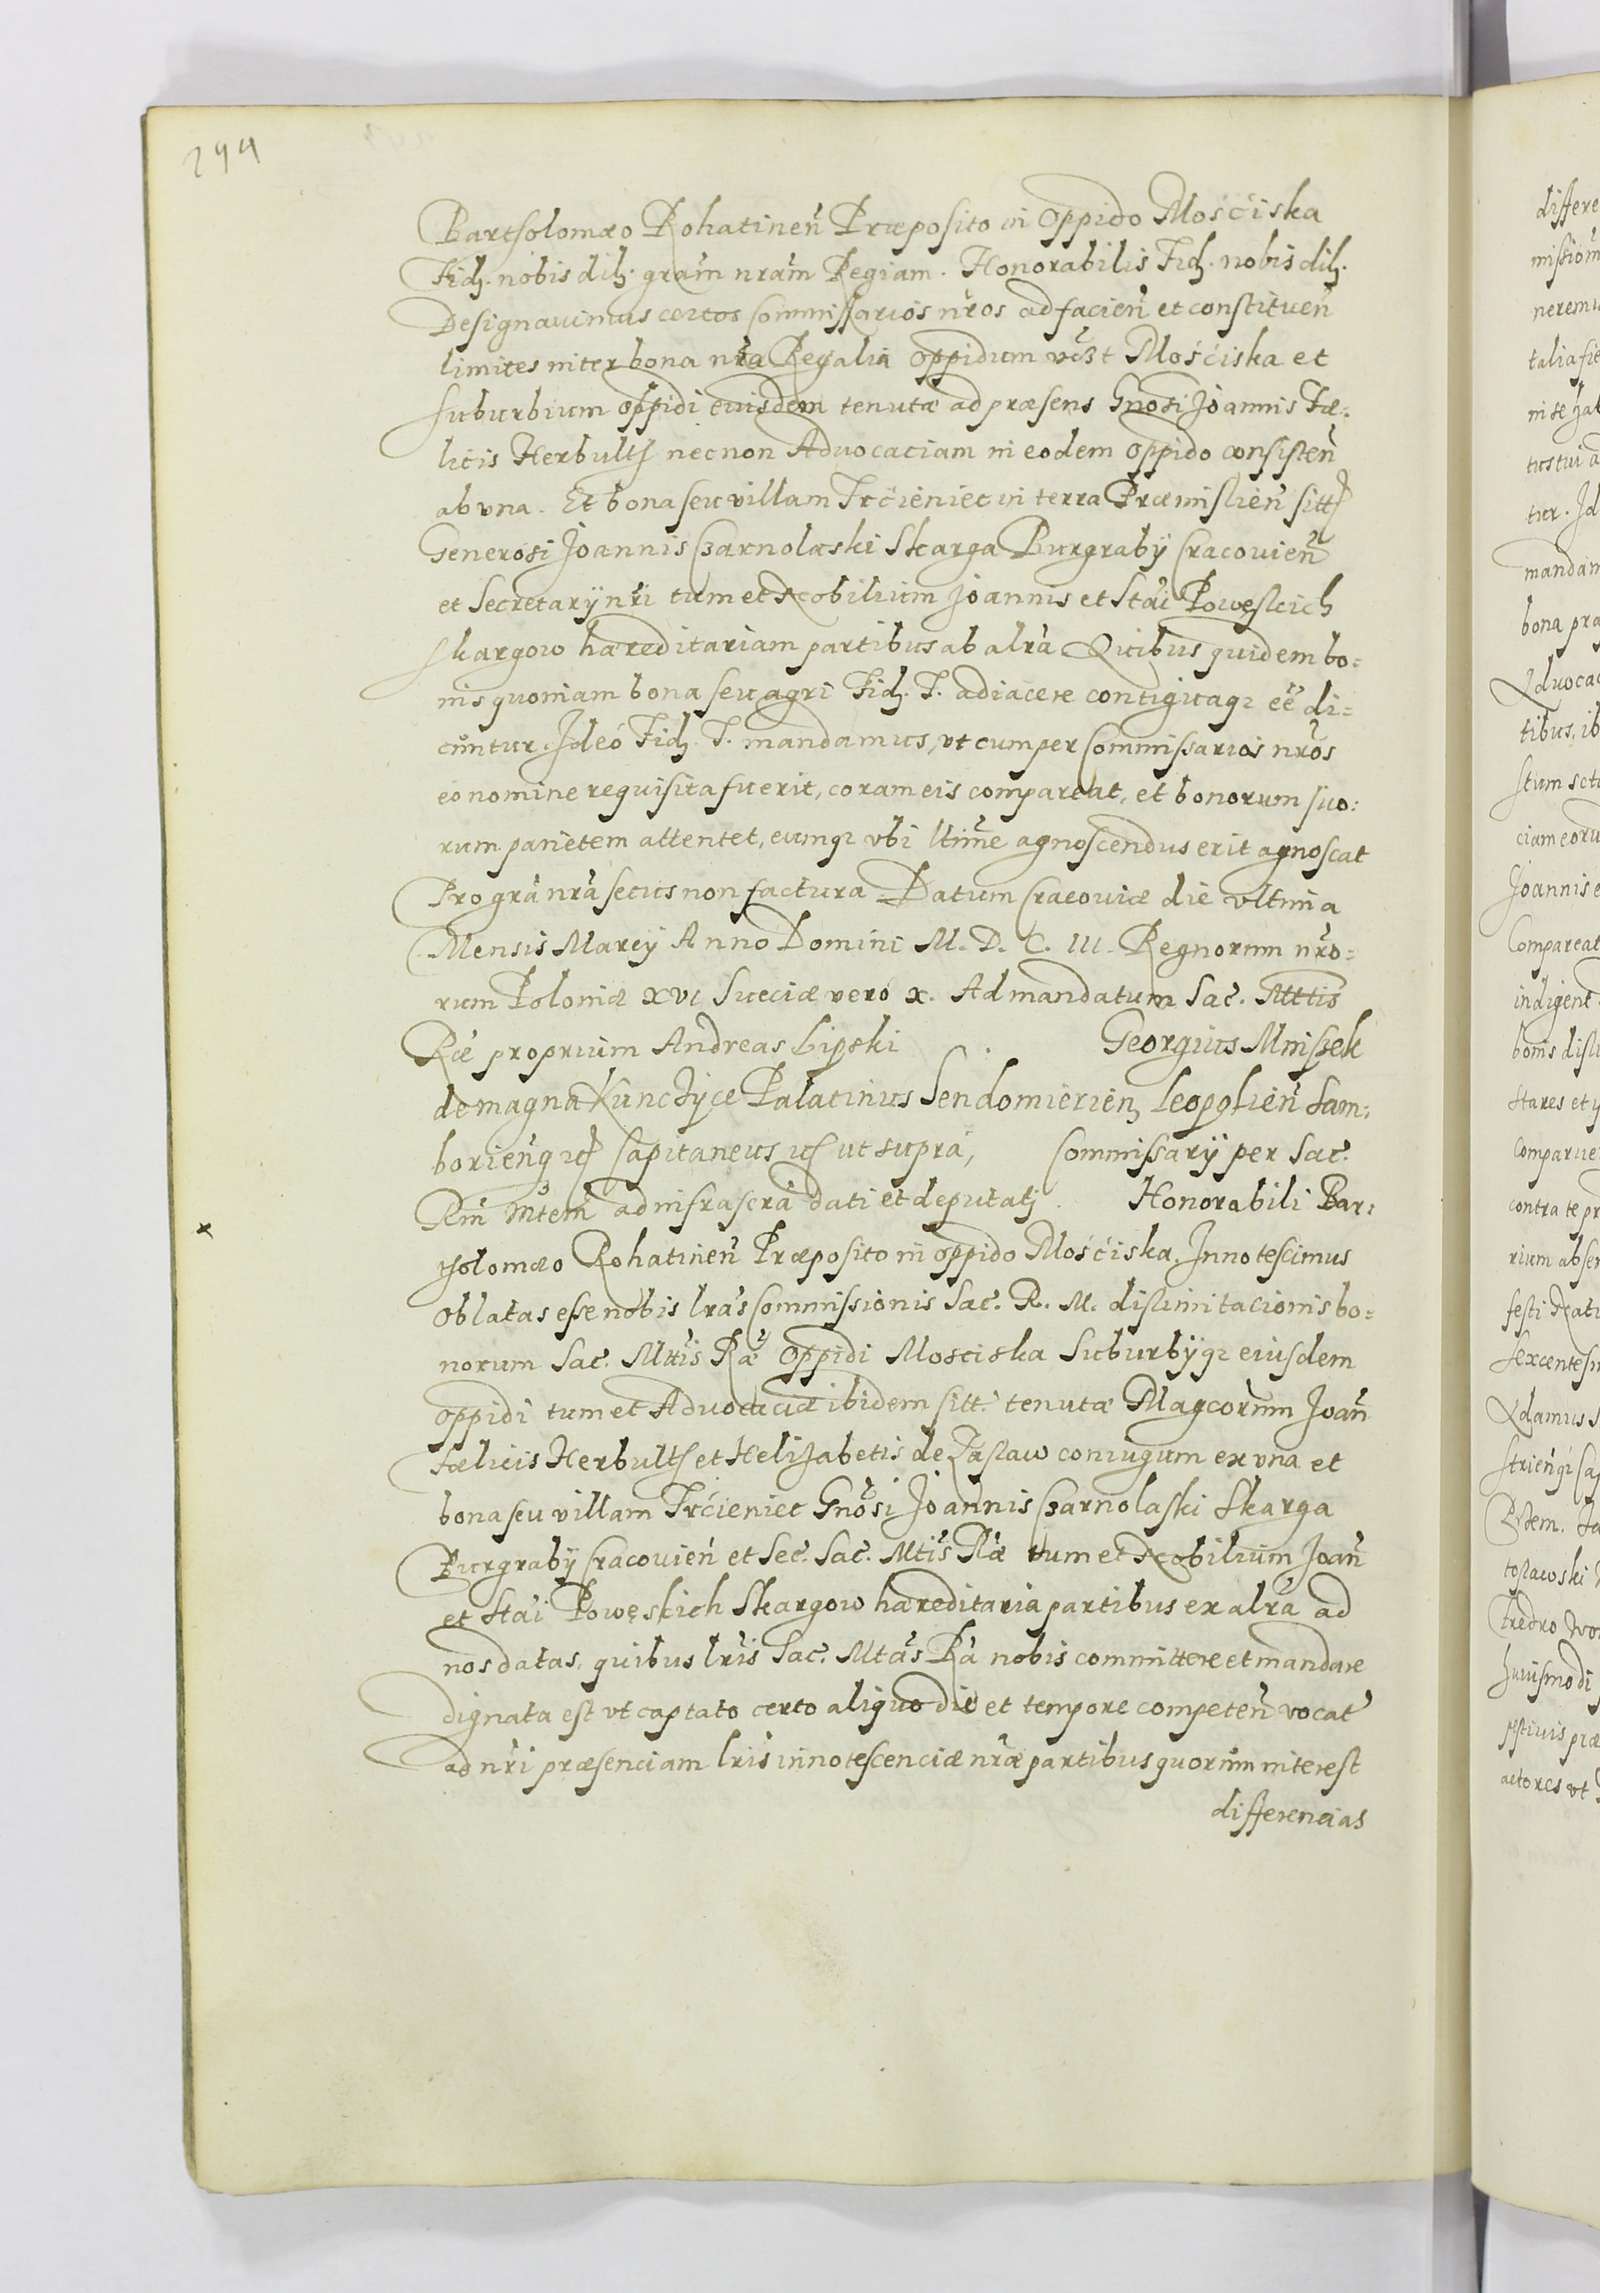 244
Bartholomæo Rohatineñ Præposito in Oppido Mośćiska
Fid. nobis dil. grãm nrãm Regiam. Honorabilis Fid. nobis dil.
Designauimus certos Commissarios nr̃os ad facieñ et constitueñ
limites inter bona nrã Regalia oppidum vc̃zt Mośćiska et
suburbium oppidi eiusdem tenutæ ad præsens Gnosi Joannis Fæ-
licis Herbultt necnon Aduocaciam in eodem oppido consisteñ
ab vna. Et bona seu villam Trćieniec in terra Præmislieñ sitt
Generosi Joannis Czarnolaski Skarga Burgrabÿ Cracouieñ
et Secretarÿ nr̃i tum et Nobilium Joannis et Stãi Powęskich
Skargow hæreditariam partibus ab alrã Quibus quidem bo-
nis quoniam bona seu agri Fid. T. adiacere contiguaqz eẽ di-
cuntur. Ideó Fid. T. mandamus, vt cum per Commissarios nr̃os
eo nomine requisita fuerit, coram eis compareat, et bonorum suo-
rum parietem attentet, eumqz vbi ltimẽ agnoscendus erit agnoscat
Pro grã nrã secus non factura Datum Cracouiæ die vltima
Mensis Marcÿ Anno Domini M. D. C. III. Regnorum nr̃o-
rum Poloniæ XVI Sueciæ vero X. Ad mandatum Sac. Mttis
Ræ proprium Andreas Lipski Georgius Mniszek
de magna Kunczÿce Palatinus Sendomierieñ, Leopolieñ Sam-
borieñqz Capitaneus ut supra, Commissarÿ per Sac.
Rm̃ Mtem̃ ad infrascrã dati et deputati. Honorabili Bar-
tholomæo Rohatineñ Præposito in oppido Mośćiska, Innotescimus
Oblatas esse nobis lrãs Commissionis Sac. R. M. dislimitacionis bo-
norum Sac. Mttis Ræ Oppidi Mosciska Suburbÿqz eiusdem
oppidi tum et Aduocaciæ ibidem sitt. tenutæ Magcorum Joañ
Fælicis Herbultt et Helizabetis de Zaslaw coniugum ex vna et
bona seu villam Trćieniec Gnõsi Joannis Czarnolaski Skarga
Burgrabÿ Cracouieñ et Sec. Sac. Mtis Ræ tum et Nobilium Joañ
et Stãi Powęskich Skargow hæreditaria partibus ex alrã ad
nos datas, quibus lrĩs Sac. Mtas Rã nobis committere et mandare
dignata est vt captato certo aliquo die et tempore competeñ vocat
ad nr̃i præsenciam lrĩs innotescenciæ nræ partibus quorum interest
differencias
differe
missiom
neremu
talia fie
tur. Id
mandam
bona pra
Aduocac
tibus, ib
ciam eoru
Joannis e
Compareat
indigene
bonis disli
Stares et y
Comparue
contra te pr
rium absen
Sexcentesi
Adamus
toslawski
Fredro
huiusmodi
actores vt